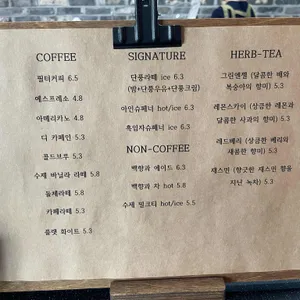 COFFEE
필터커피 6.5
에스프레소 4.8
아메리카노 4.8
디 카페인 5.3
콜드브루 5.3
수제 바닐라 라떼 5.8
돌체라떼 5.8
카페라떼 5.3
플랫 화이트 5.3
SIGNATURE
단풍라떼 ice 6.3
(밤+단풍우유+단풍크림)
아인슈페너 hot/ice 6.3
흑임자슈페너 ice 6.3
NON-COFFEE
백향과 에이드 6.3
백향과 차 hot 5.8
수제 밀크티 hot/ice 5.5
HERB-TEA
그린앤젤 (달콤한 배와
복숭아의 향미) 5.3
레몬스카이 (상큼한 레몬과
달콤한 사과의 향미) 5.3
레드베리 (상큼한 베리의
새콤한 향미) 5.3
재스민 (향긋한 재스민 향을
지닌 녹차) 5.3